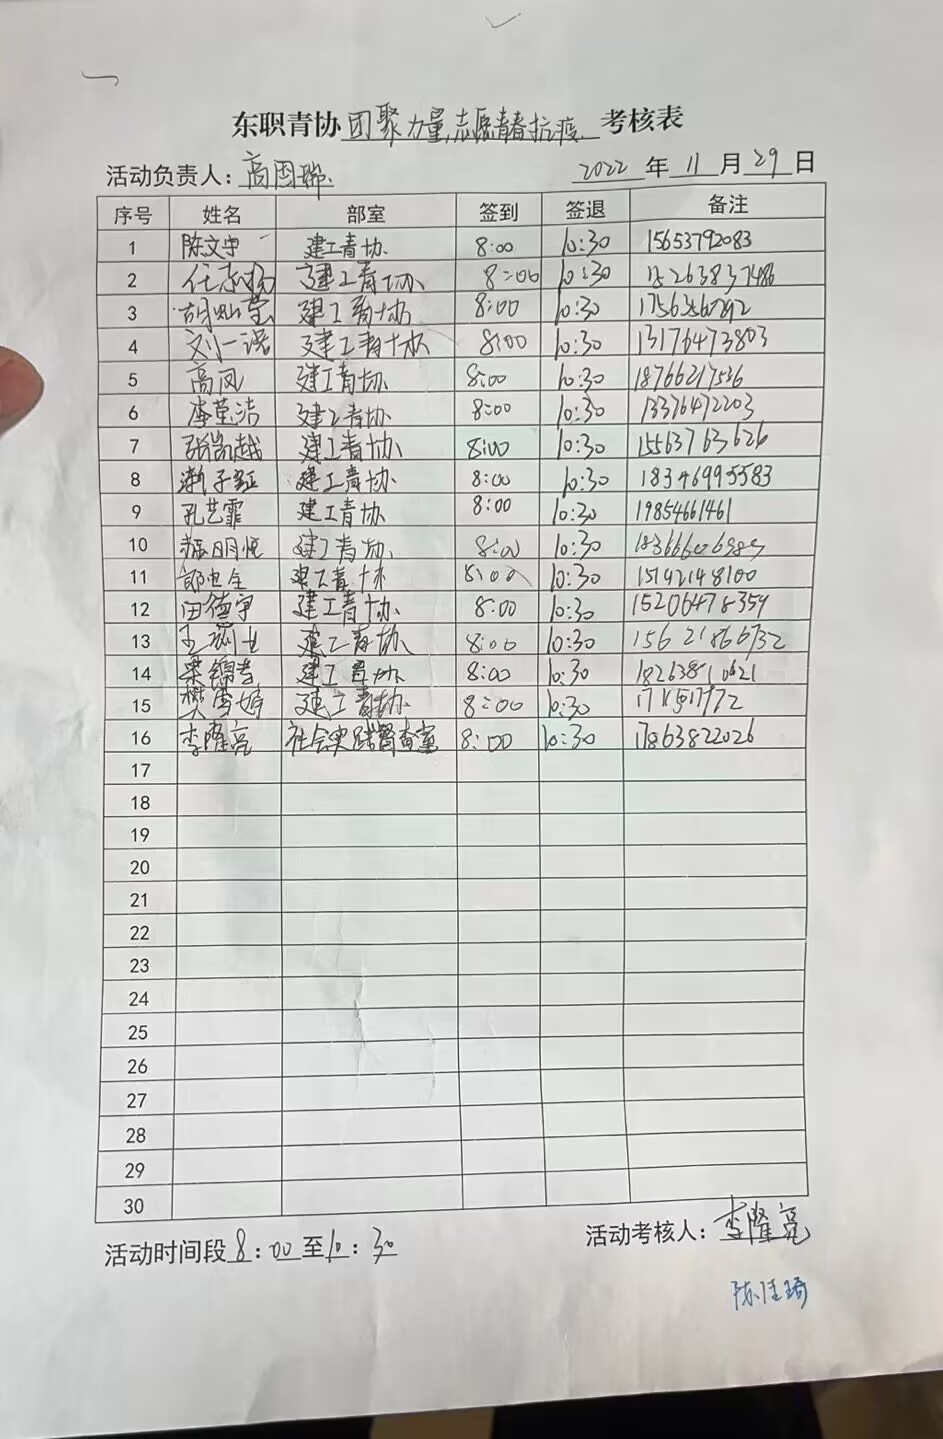 东职青协团聚力量,志愿青春抗疫.考核表
活动负责人:高国瑞.
2022年11月29日
序号 姓名 部室 签到 签退 备注
1 陈文宇 建工青协 8:00 10:30 15653792083
2 任志杨 建工青协 8:00 10:30 15263837486
3 胡灿莹 建工青协 8:00 10:30
4 刘一诺 建工青协 8:00 10:30 13176473803
5 高凤 建工青协 8:00 10:30 18766217536
6 李莹洁 建工青协 8:00 10:30 13376472203
7 张凯越 建工青协 8:00 10:30 15563763626
8 建工青协 8:00 10:30 18346995583
9 孔艺霏 建工青协 8:00 10:30 19854661461
10 建工青协 8:00 10:30
11 建工青协 8:00 10:30 15192148100
12 田德宇 建工青协 8:00 10:30 15206478359
13 建工青协 8:00 10:30 15621866732
14 建工青协 8:00 10:30 18263810621
15 樊雪婷 建工青协 8:00 10:30
16 李隆亮 社会实践督查室 8:00 10:30 17863822026
17
18
19
20
21
22
23
24
25
26
27
28
29
30
活动时间段8:00至10:30
活动考核人:李隆亮
陈佳琦